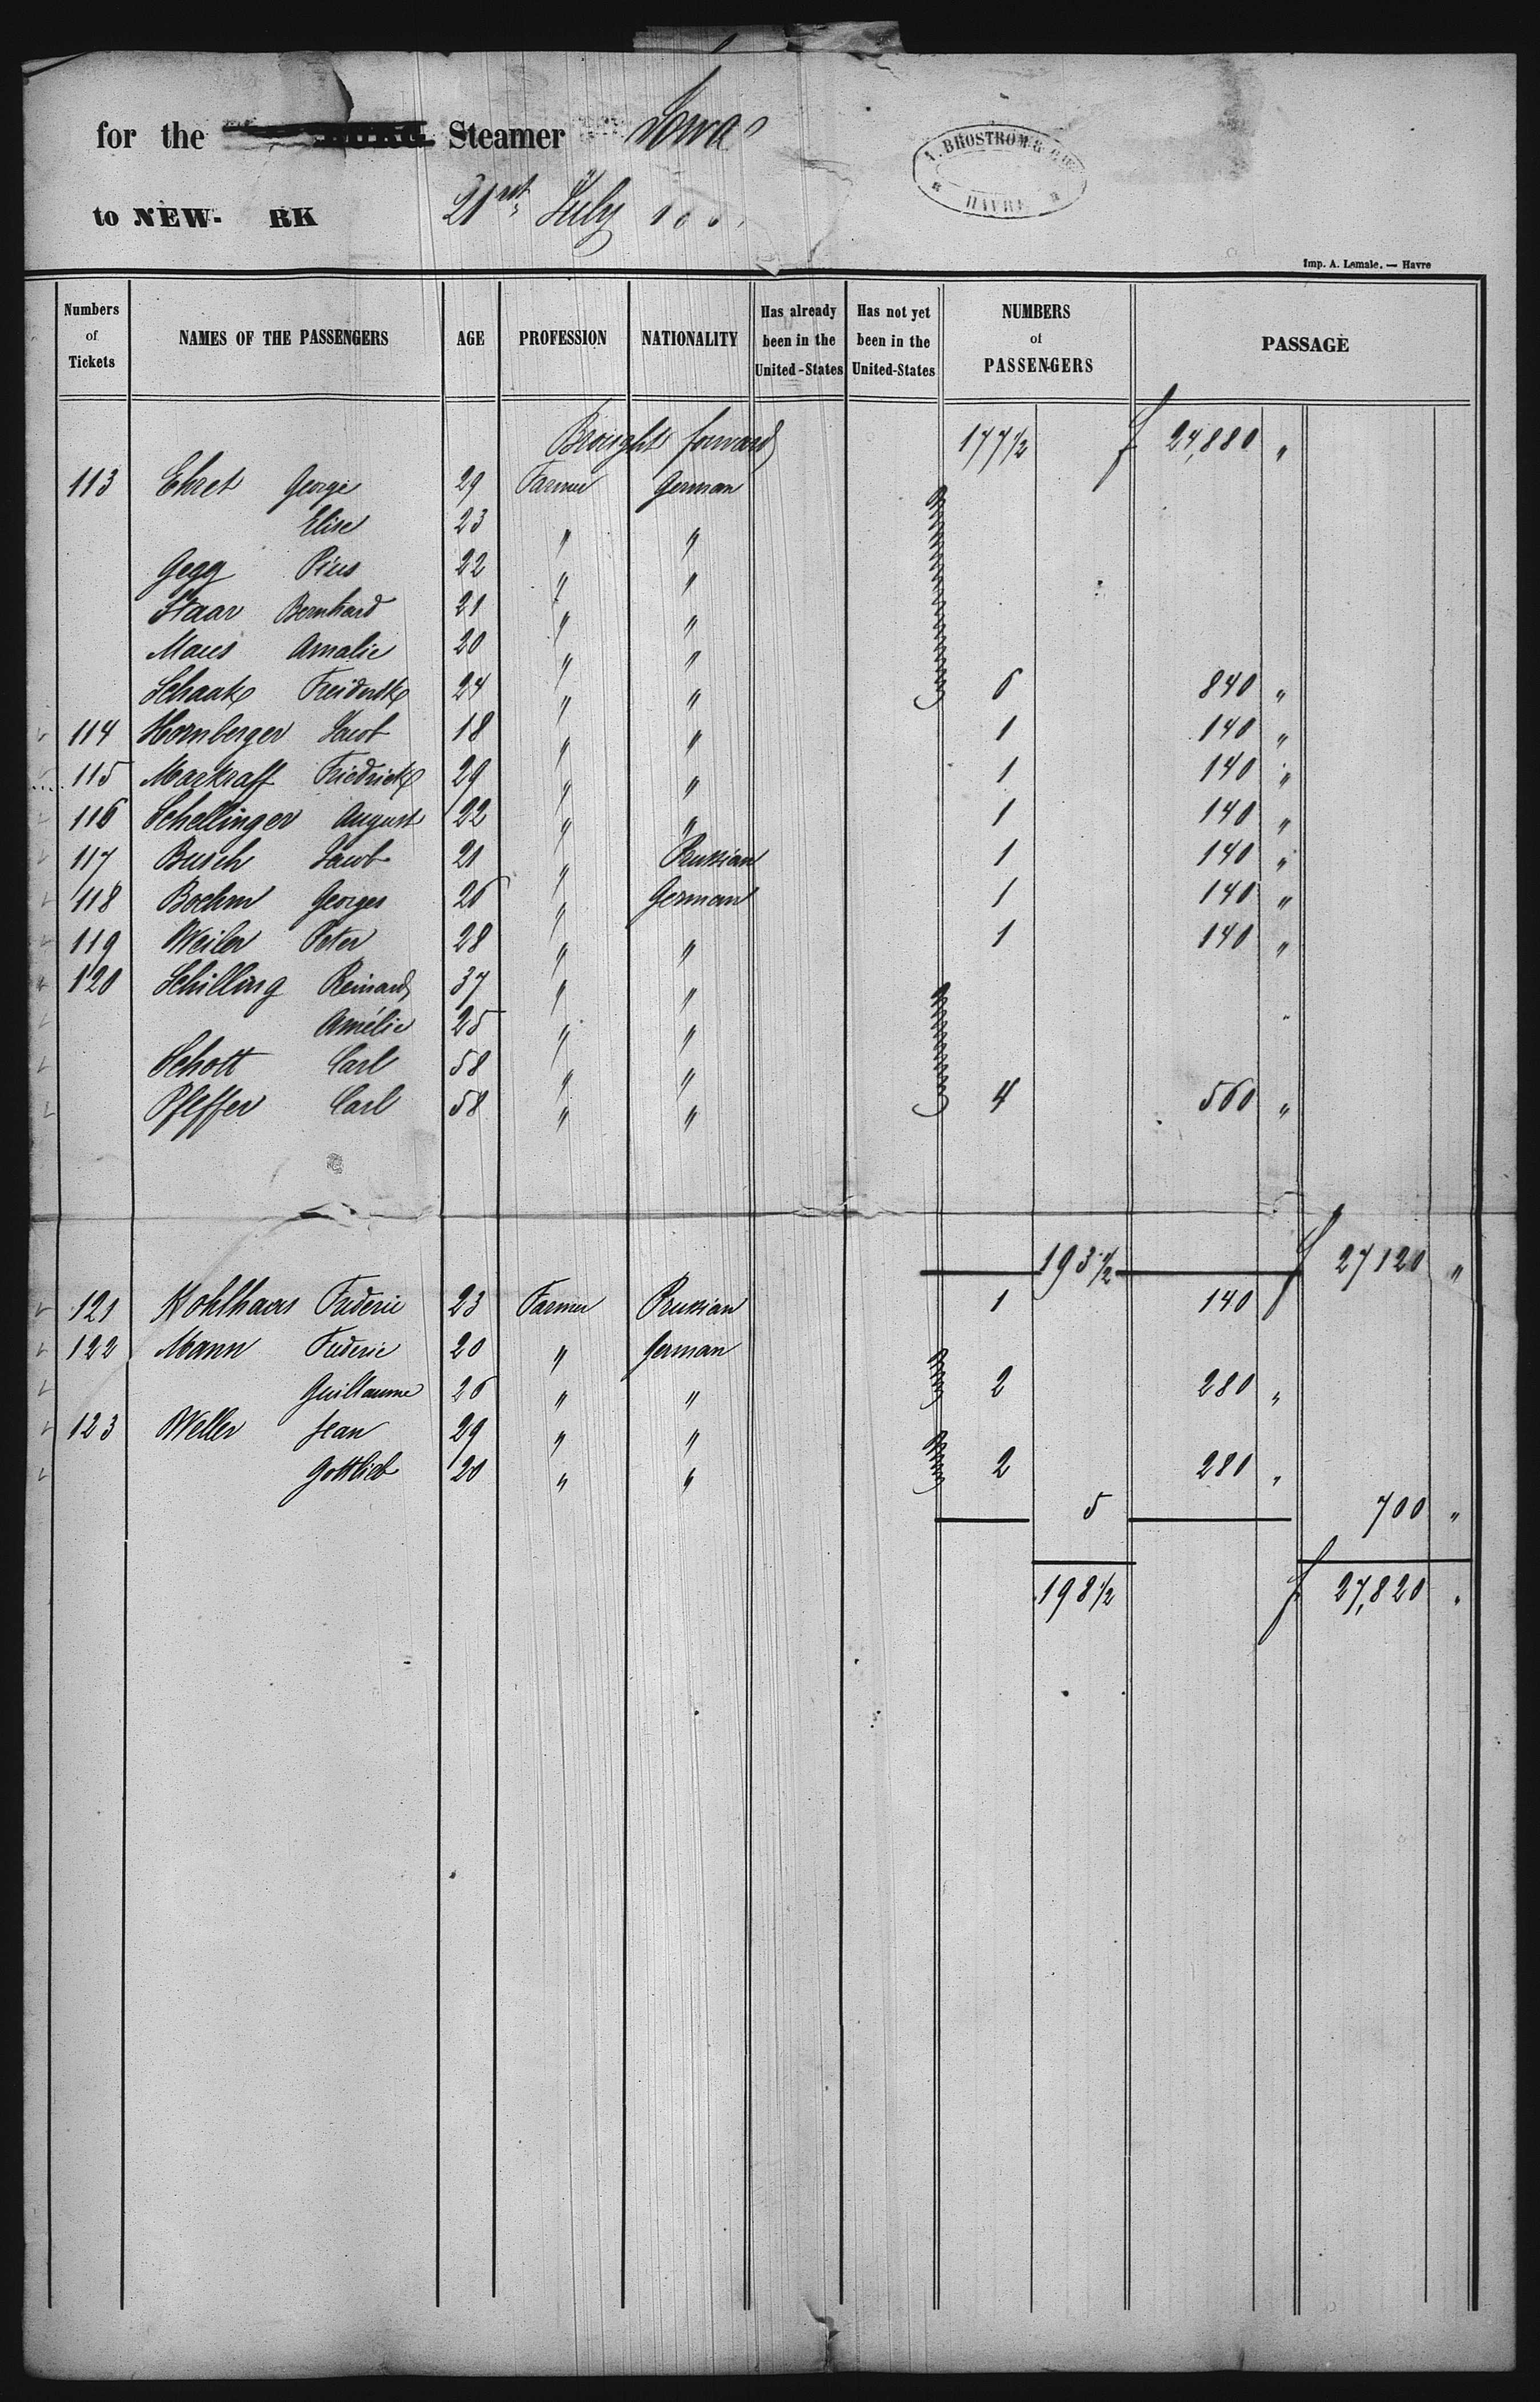 for the Steamer Iowa
A. BROSTROM & Cie HAVRE
to NEW- RK 21st July
Imp. A. Lemale. — Havre
Numbers of Tickets NAMES OF THE PASSENGERS AGE PROFESSION NATIONALITY Has already been in the United-States Has not yet been in the United-States NUMBERS of PASSENGERS PASSAGE
Brought forward 177 1/2 f 24,880 "
113 Ehret George 29 Farmer German
Elise 23 " "
Gegg Pius 22 " "
Staar Bernhard 21 " "
Maus Amalie 20 " "
Schaak Freiderik 24 " " 6 840 "
114 Hornberger Jacob 18 " " 1 140 "
115 Markraff Friedrick 29 " " 1 140 "
116 Schellinger August 22 " " 1 140 "
117 Busch Jacob 21 " Prussian 1 140 "
118 Boehm Georges 26 " German 1 140 "
119 Weiler Peter 28 " " 1 140 "
120 Schilling Reinard 37 " "
Amélie 25 " "
Schott Carl 58 " "
Pfeffer Carl 58 " " 4 560 "
193 1/2 f 27120 "
121 Kohlhaas Frederic 23 Farmer Prussian 1 140
122 Mann Frederic 20 " German
Guillaume 26 " " 2 280 "
123 Weller Jean 29 " "
Gottlieb 20 " " 2 280 "
5 700 "
198 1/2 f 27,820 "